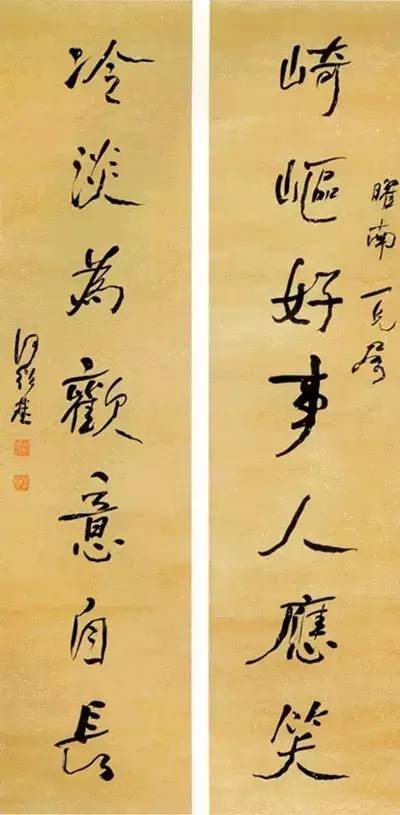 崎嶇好事人應笑
曜南一兄屬
冷淡為歡意自長
何紹基